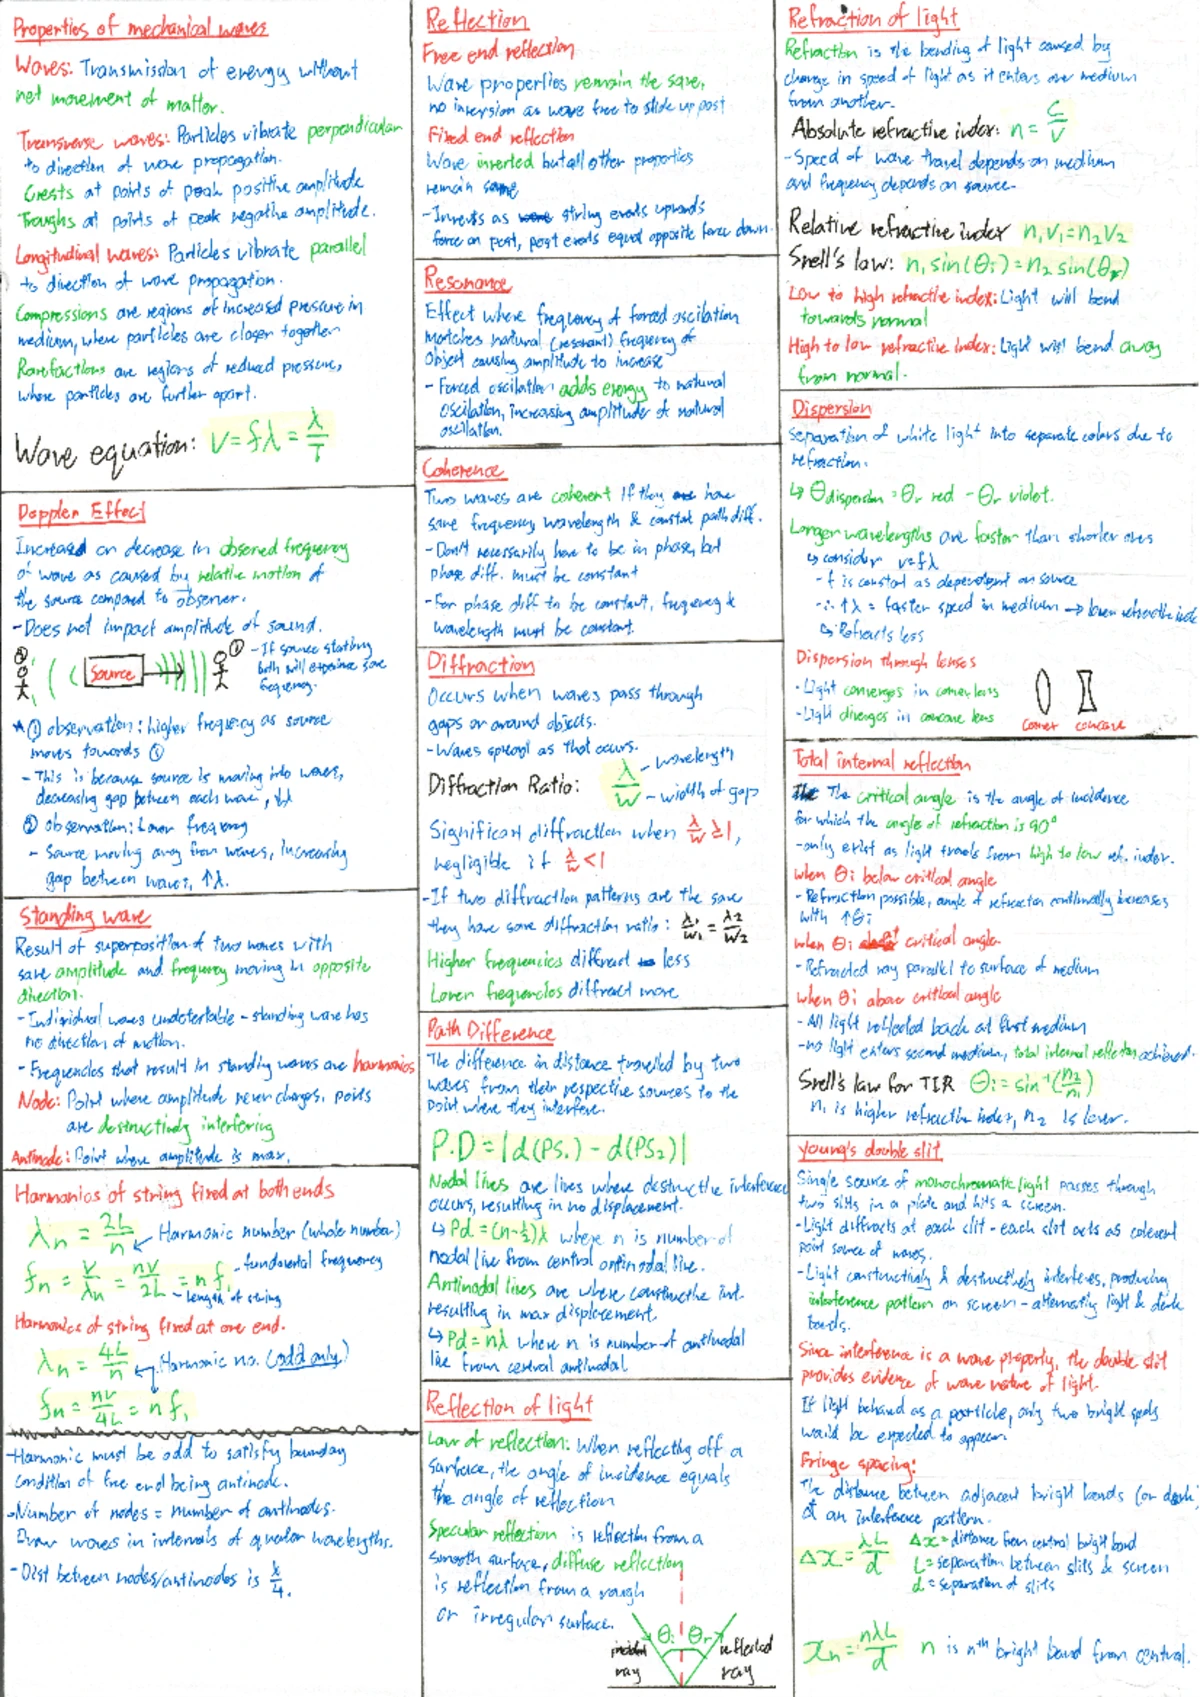 Properties of mechanical waves
Waves: Transmission of energy without
net movement of matter.
Transverse waves: Particles vibrate perpendicular
to direction of wave propagation.
Crests at points of peak positive amplitude
Troughs at points of peak negative amplitude.
Longitudinal waves: Particles vibrate parallel
to direction of wave propagation.
Compressions are regions of increased pressure in
medium, where particles are closer together
Rarefactions are regions of reduced pressure,
where particles are further apart.
Wave equation: V = fλ = λ/T
Doppler Effect
Increased or decrease in observed frequency
of wave as caused by relative motion of
the source compared to observer.
- Does not impact amplitude of sound.
② Source ① - If source stationary
both will experience same
frequency.
* ① observation: higher frequency as source
moves towards ①
- This is because source is moving into waves,
decreasing gap between each wave, ↓λ
② observation: Lower frequency
- Source moving away from waves, increasing
gap between waves, ↑λ.
Standing wave
Result of superposition of two waves with
same amplitude and frequency moving in opposite
direction.
- Individual waves undetectable - standing wave has
no direction of motion.
- Frequencies that result in standing waves are harmonics
Node: Point where amplitude never changes, points
are destructively interfering
Antinode: Point where amplitude is max.
Harmonics of string fixed at both ends
λn = 2L/n Harmonic number (whole number)
fn = V/λn = nV/2L = n f1 - fundamental frequency
- length of string
Harmonics of string fixed at one end.
λn = 4L/n Harmonic no. (odd only)
fn = nv/4L = n f1
- Harmonic must be odd to satisfy boundary
condition of free end being antinode.
- Number of nodes = number of antinodes.
Draw waves in intervals of quarter wavelengths.
- Dist between nodes/antinodes is λ/4.
Reflection
Free end reflection
Wave properties remain the same,
no inversion as wave free to slide up post
Fixed end reflection
Wave inverted but all other properties
remain same
- Inverts as string exerts upwards
force on post, post exerts equal opposite force down.
Resonance
Effect where frequency of forced oscilation
matches natural (resonant) frequency of
object causing amplitude to increase
- Forced oscilation adds energy to natural
oscilation, increasing amplitude of natural
oscilation.
Coherence
Two waves are coherent if they have
same frequency, wavelength & constat path diff.
- Don't necessarily have to be in phase, but
phase diff. must be constant
- For phase diff to be constant, frequency &
wavelength must be constant.
Diffraction
Occurs when waves pass through
gaps or around objects.
- Waves spread as that occurs.
Diffraction Ratio: λ/W - wavelength
- width of gap
Significant diffraction when λ/w ≥ 1,
negligible if λ/w < 1
- If two diffraction patterns are the same
they have same diffraction ratio: λ1/W1 = λ2/W2
Higher frequencies diffract less
Lower frequencies diffract more
Path Difference
The difference in distance travelled by two
waves from their respective sources to the
point where they interfere.
P.D = |d(PS1) - d(PS2)|
Nodal lines are lines where destructive interference
occurs, resulting in no displacement.
↳ Pd = (n-½)λ where n is number of
nodal line from central antinodal line.
Antinodal lines are where constructive int.
resulting in max displacement.
↳ Pd = nλ where n is number of antinodal
line from central antinodal
Reflection of light
Law of reflection: When reflecting off a
surface, the angle of incidence equals
the angle of reflection
Specular reflection is reflection from a
smooth surface, diffuse reflection
is reflection from a rough
or irregular surface.
θi θr
incident ray reflected ray
Refraction of light
Refraction is the bending of light caused by
change in speed of light as it enters one medium
from another.
Absolute refractive index: n = c/v
- Speed of wave travel depends on medium
and frequency depends on source.
Relative refractive index n1V1 = n2V2
Snell's law: n1 sin(θi) = n2 sin(θr)
Low to high refractive index: Light will bend
towards normal
High to low refractive index: Light will bend away
from normal.
Dispersion
Separation of white light into separate colors due to
refraction.
↳ θdispersion = θr red - θr violet.
Longer wavelengths are faster than shorter ones
↳ consider v=fλ
- f is constat as dependent on source
- ∴ ↑λ = faster speed in medium → lower refractive index
↳ Refracts less
Dispersion through lenses
- Light converges in convex lens
- Light diverges in concave lens
convex concave
Total internal reflection
The critical angle is the angle of incidence
for which the angle of refraction is 90°
- only exist as light travels from high to low ref. index.
when θi below critical angle
- Refraction possible, angle of refraction continually increases
with ↑θi
when θi at critical angle.
- Refracted ray parallel to surface of medium
when θi above critical angle
- All light reflected back at first medium
- no light enters second medium, total internal reflection achieved.
Snell's law for TIR θi = sin⁻¹(n2/n1)
n1 is higher refractive index, n2 is lower.
Young's double slit
Single source of monochromatic light passes through
two slits in a plate and hits a screen.
- Light diffracts at each slit - each slot acts as coherent
point source of waves.
- Light constructively & destructively interferes, producing
interference pattern on screen - alternating light & dark
bands.
Since interference is a wave property, the double slit
provides evidence of wave nature of light.
If light behaved as a particle, only two bright spots
would be expected to appear.
Fringe spacing:
The distance between adjacent bright bands (or dark)
of an interference pattern.
Δx = λL/d Δx = distance from central bright band
L = separation between slits & screen
d = separation of slits
xn = nλL/d n is nth bright band from central.